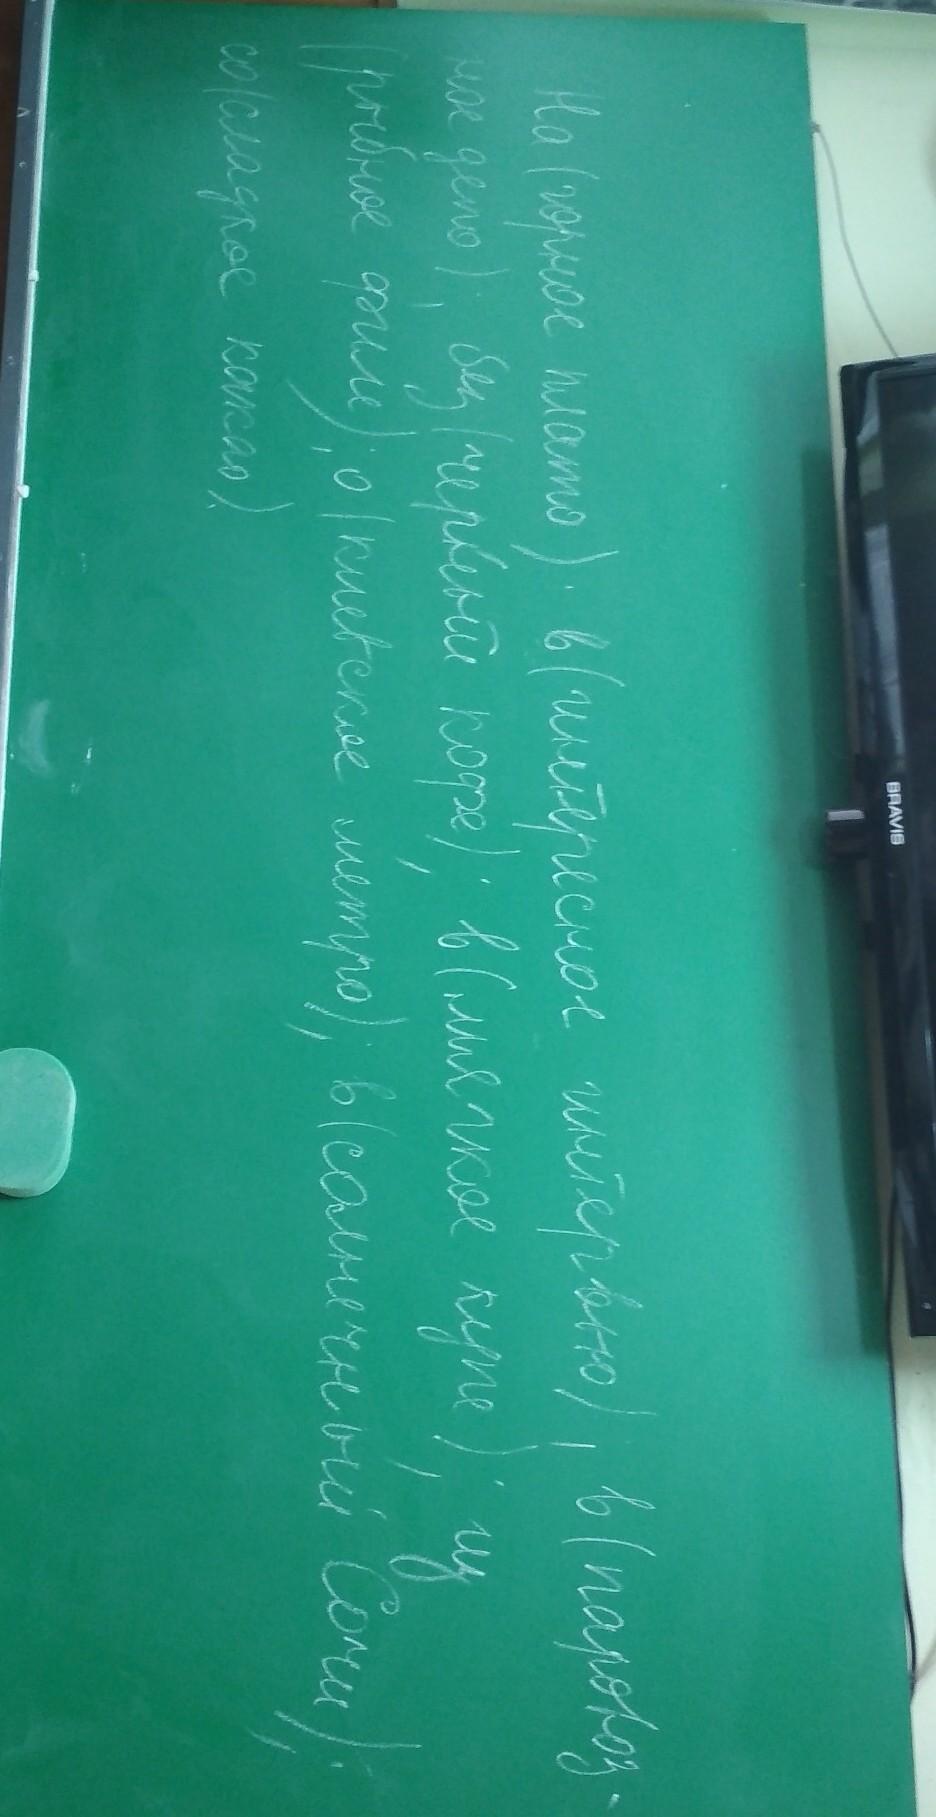 На (горное плато); в (интересное интервью), в (паровоз-
ное депо); без (черный кофе); в (мягкое купе); из
(рыбное филе); о (киевское метро); в (солнечный Сочи);
со (сладкое какао)
BRAVIS